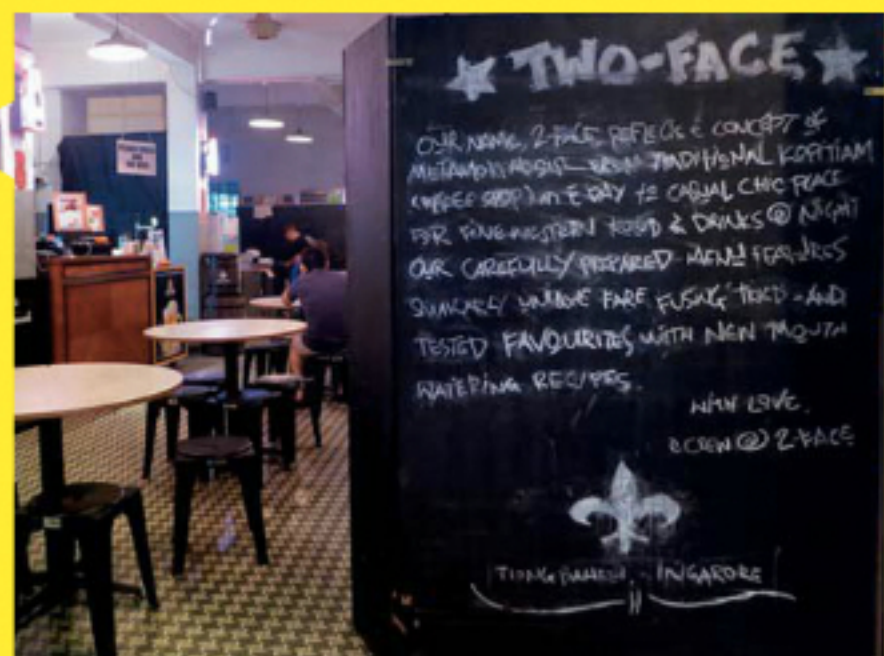 TWO-FACE
OUR NAME, 2-FACE, REFLECTS E CONCEPT OF
METAMORPHOSIS FROM TRADITIONAL KOPITIAM
(COFFEE SHOP) IN E DAY TO CASUAL CHIC PLACE
FOR FINE WESTERN FOOD & DRINKS @ NIGHT
OUR CAREFULLY PREPARED MENU FEATURES
UNIQUE FARE FUSING TRIED-AND
TESTED FAVOURITES WITH NEW MOUTH
WATERING RECIPES.
WITH LOVE,
E CREW @ 2-FACE
TIONG BAHRU - SINGAPORE